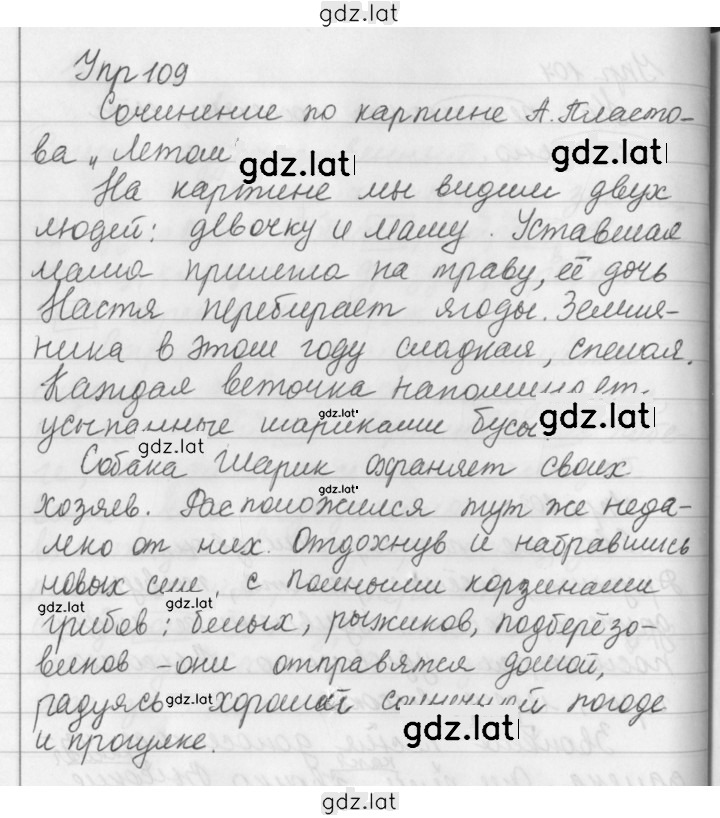 gdz.lat
Упр 109
Сочинение по картине А. Пласто-
ва „Летом"
gdz.lat
gdz.lat
На картине мы видим двух
людей: девочку и маму. Уставшая
мама прилегла на траву, её дочь
Настя перебирает ягоды. Земля-
ника в этом году сладкая, спелая.
Каждая веточка напоминает
усыпанные шариками бусы.
gdz.lat
gdz.lat
gdz.lat
Собака Шарик охраняет своих
gdz.lat
хозяев. Расположился тут же неда-
леко от них. Отдохнув и набравшись
новых сил, с полными корзинами
gdz.lat
gdz.lat
грибов: белых, рыжиков, подберёзо-
виков - они отправятся домой,
радуясь хорошей солнечной погоде
gdz.lat
gdz.lat
и прогулке.
gdz.lat